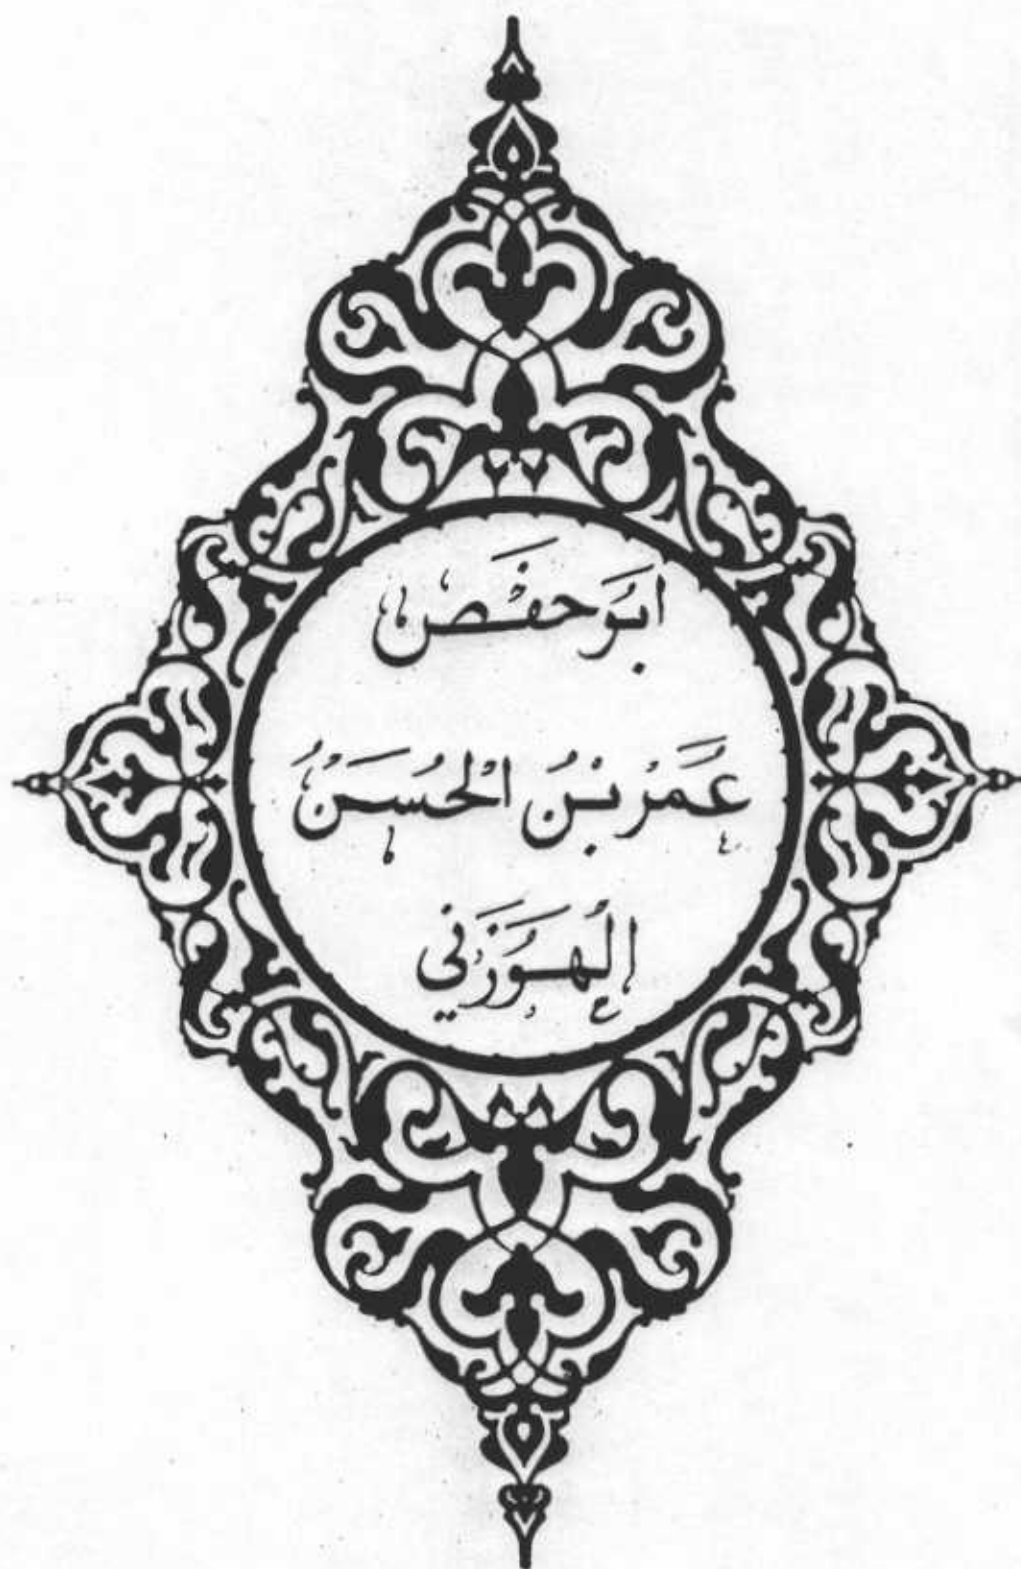 ابَو حفَص
عُمَرْ بْنُ الحُسَنُ
الُهوَزَني